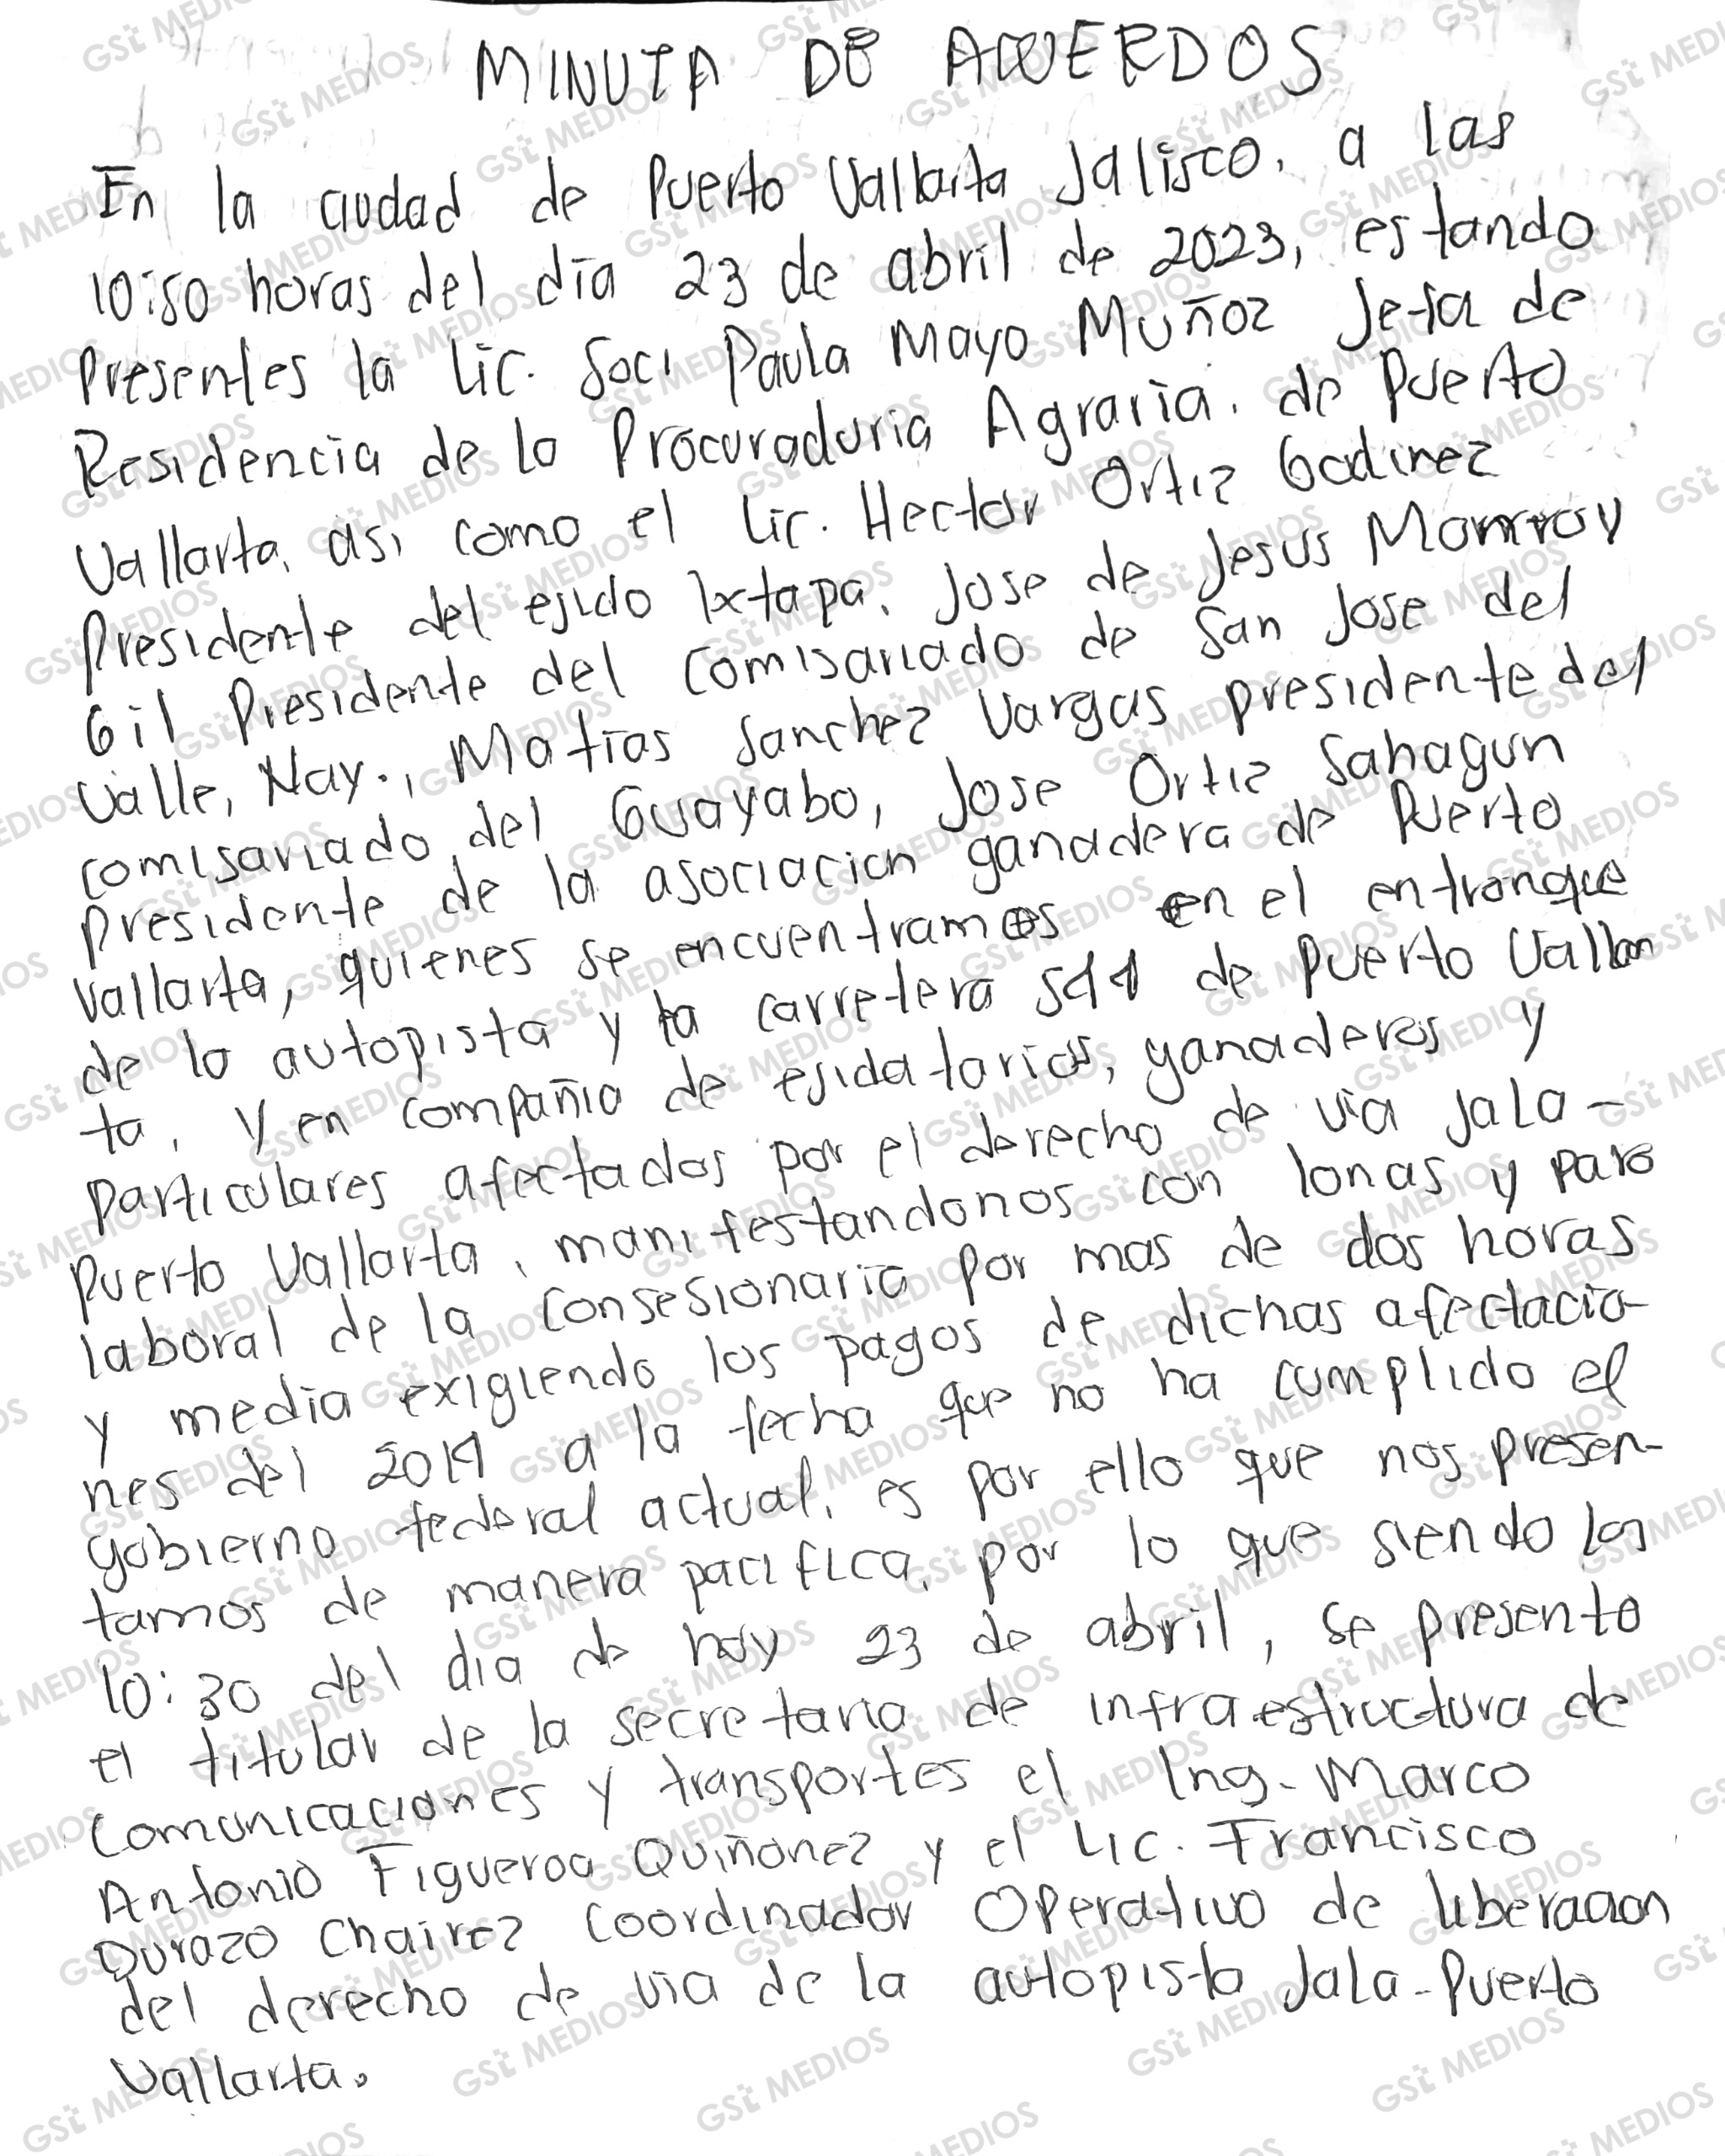 MINUTA DE ACUERDOS
En la ciudad de Puerto Vallarta Jalisco, a las
10:50 horas del día 23 de abril de 2023, estando
Presentes la Lic. Soci Paula Mayo Muñoz Jefa de
Residencia de la Procuraduria Agraria. de Puerto
Vallarta, asi como el Lic. Hector Ortiz Godinez
Presidente del ejido Ixtapa, Jose de Jesus Monrroy
Gil Presidente del comisariado de San Jose del
Valle, Nay., Matias Sanchez Vargas presidente del
comisariado del Guayabo, Jose Ortiz Sahagun
presidente de la asociacion ganadera de Puerto
Vallarta, quienes se encuentramos en el entronque
de la autopista y la carretera 544 de Puerto Vallar
ta, y en compañia de ejidatarios, ganaderos y
particulares afectados por el derecho de via Jala-
Puerto Vallarta, manifestandonos con lonas y paro
laboral de la consesionaria por mas de dos horas
y media exigiendo los pagos de dichas afectacio-
nes del 2014 a la fecha que no ha cumplido el
gobierno federal actual, es por ello que nos presen-
tamos de manera pacifica, por lo que siendo las
10:30 del dia de hoy 23 de abril, se presento
el titular de la secretaria de infraestructura de
Comunicaciones y transportes el Ing. Marco
Antonio Figueroa Quiñonez y el Lic. Francisco
Durazo Chairez Coordinador Operativo de liberacion
del derecho de via de la autopista Jala-Puerto
Vallarta.